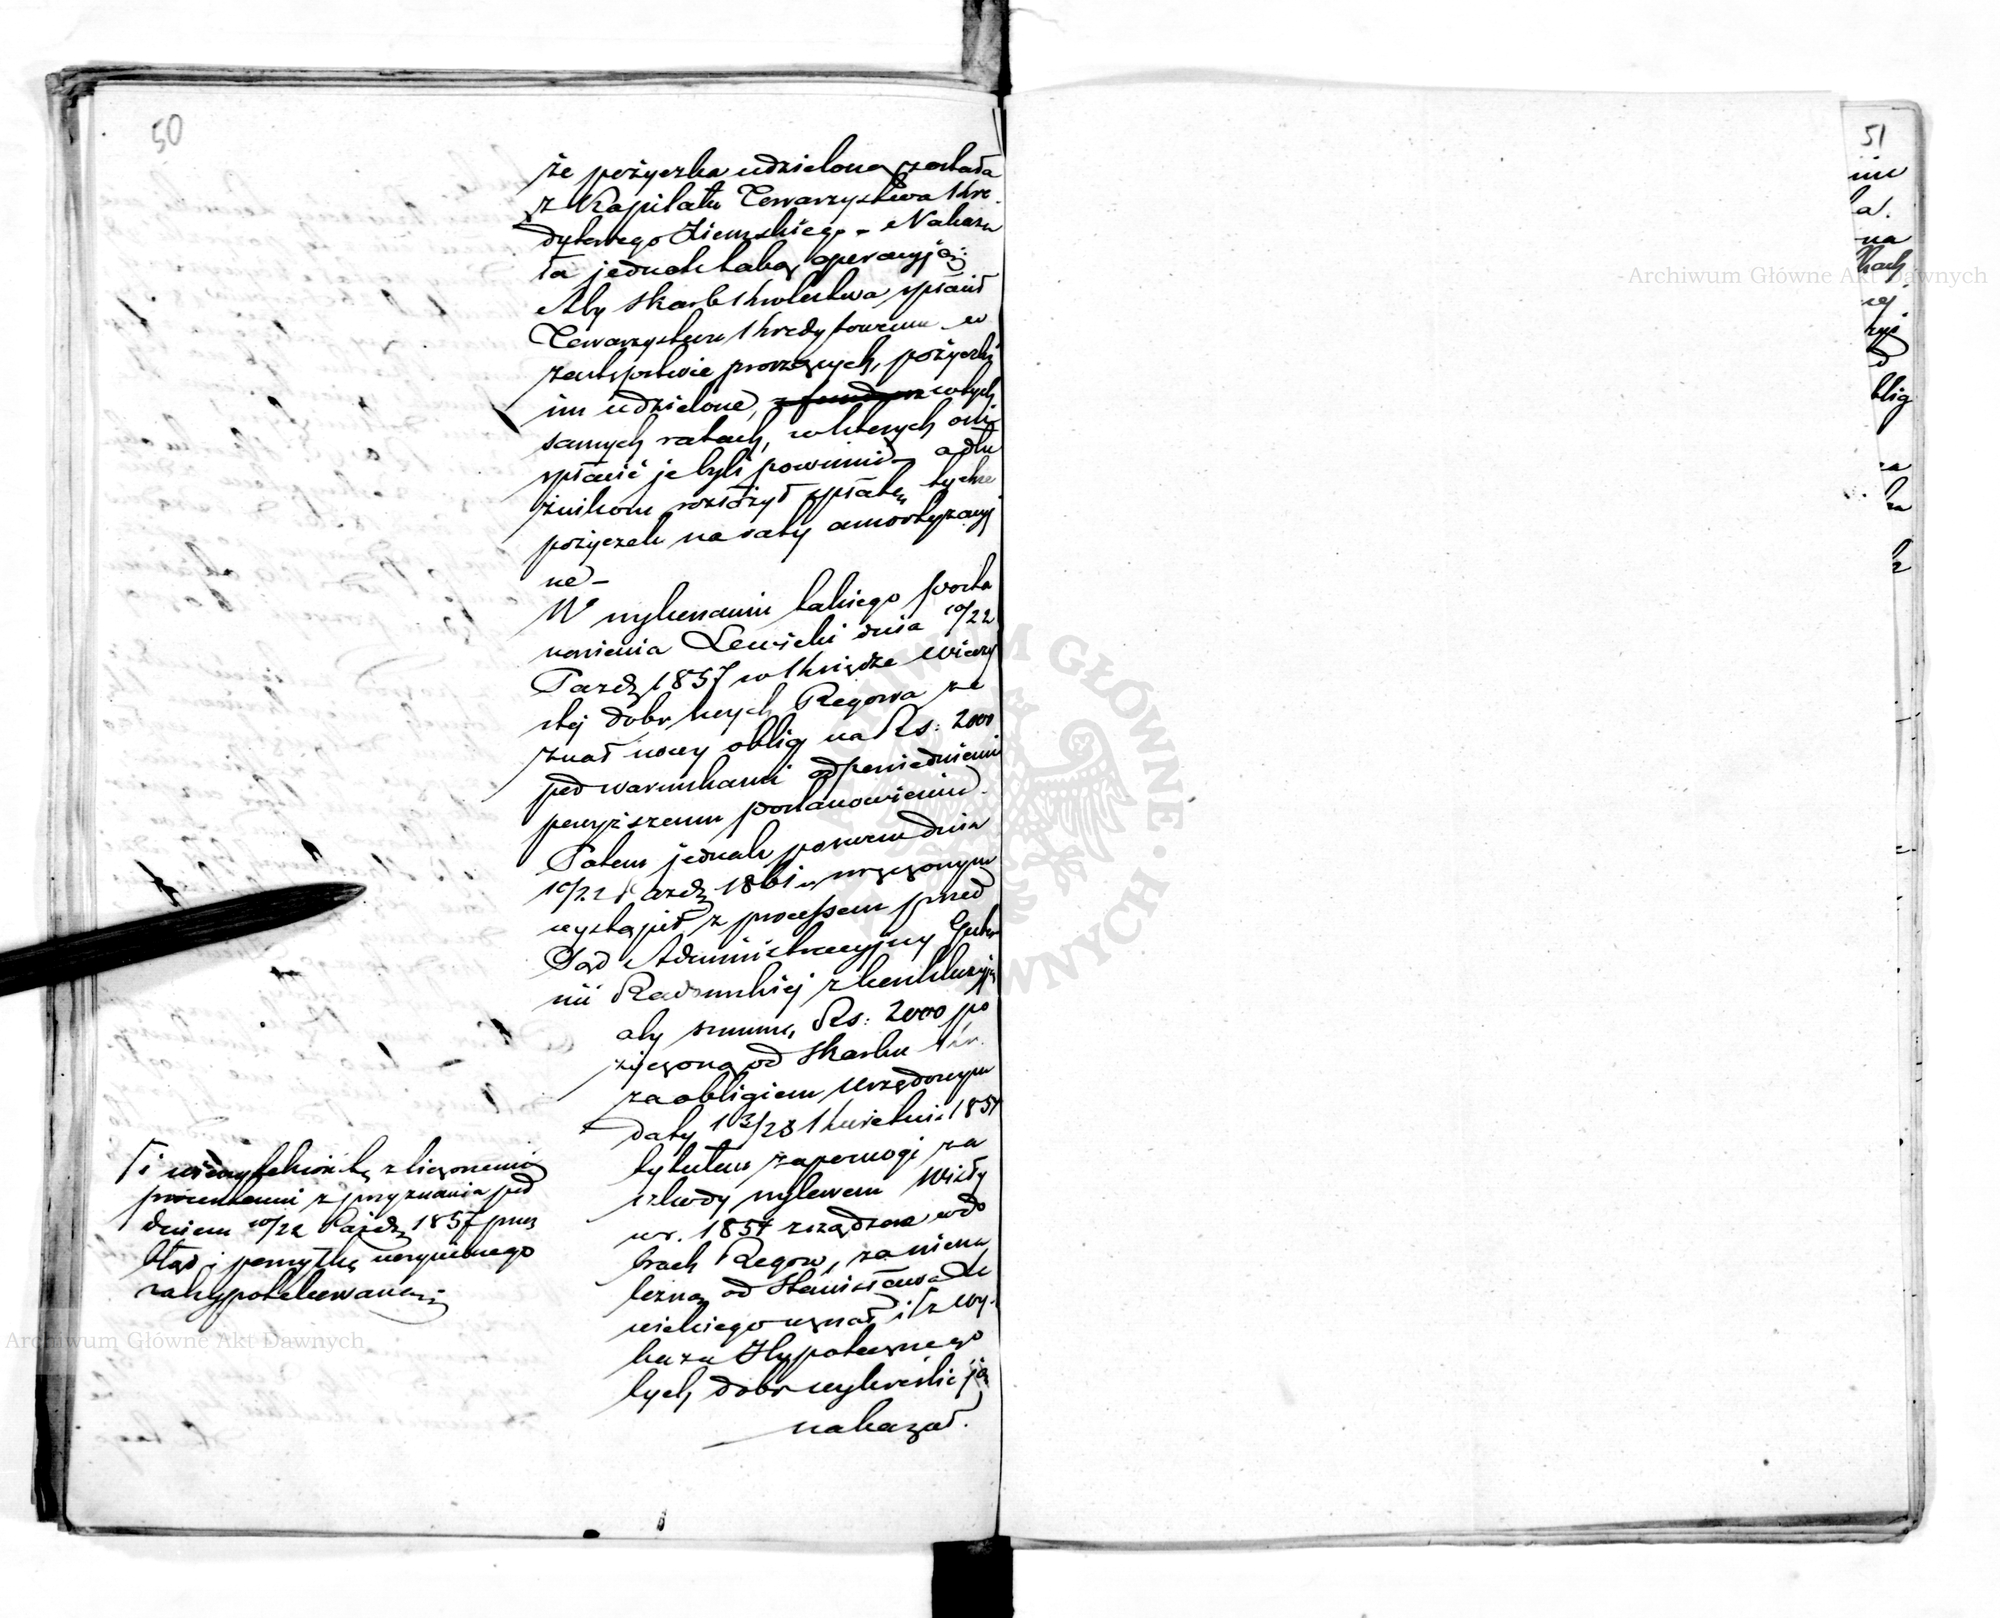 50
że pożyczka udzieloną została
z Kapitału Towarzystwa Kre-
dytowego Ziemskiego - Nakaza
ła jednak taką operacyją:
Aby Skarb Królestwa spłacił
Towarzystwu Kredytowemu w
zastępstwie proszących, pożyczki
im udzielone, w tych
samych ratach, w których oni
spłacić je byli powinni, a dłu
żnikom rozłożył spłatę tychże
pożyczek na raty amortyzacyj
ne -
W wykonaniu takiego posta
nowienia Lewicki dnia 10/22
Paźdz 1857 w Księdze wieczy
stej dóbr swych Regowa ze
znał nowy oblig na Rs: 2000
pod warunkami odpowiedniemi
powyższemu postanowieniu -
Potem jednak pozwem dnia
10/22 Paźdz 1861 wręczonym
wystąpił z processem przed
Sąd Administracyjny Guber
nii Radomskiej z konkluzyją
aby summę Rs: 2000 po
życzoną od Skarbu Kr.
za obligiem urzędowym
daty 13/25 Kwietnia 1854
tytułem zapomogi za
szkody wylewem Wisły
w r. 1854 zrządzone w do
brach Regow, za niena
leżną od Stanisława Le
wickiego uznał i z wy-
kazu Hypotecznego
tych dóbr wykreślić ją
nakazał.
z
z przyznania pod
dniem 10/22 Paźdz 1857 przez
błąd i pomyłkę uczynionego
zahypotekowaną
51
na
kach
ej
blig
za
Archiwum Główne Akt Dawnych
Archiwum Główne Akt Dawnych
ARCHIWUM GŁÓWNE · AKT DAWNYCH ·